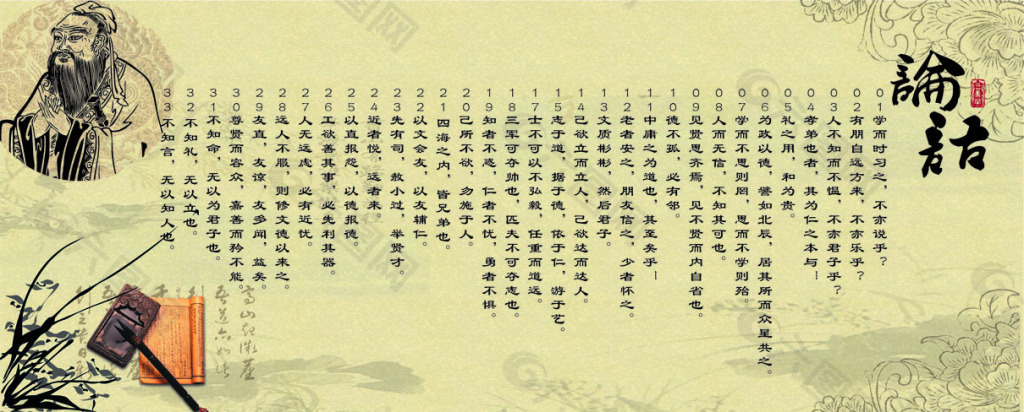 論語
01学而时习之，不亦说乎？
02有朋自远方来，不亦乐乎？
03人不知而不愠，不亦君子乎？
04孝弟也者，其为仁之本与…
05礼之用，和为贵。
06为政以德，譬如北辰，居其所而众星共之。
07学而不思则罔，思而不学则殆。
08人而无信，不知其可也。
09见贤思齐焉，见不贤而内自省也。
10德不孤，必有邻。
11中庸之为道也，其至矣乎…
12老者安之，朋友信之，少者怀之。
13文质彬彬，然后君子。
14己欲立而立人，己欲达而达人。
15志于道，据于德，依于仁，游于艺。
17士不可以不弘毅，任重而道远。
18三军可夺帅也，匹夫不可夺志也。
19知者不惑，仁者不忧，勇者不惧。
20己所不欲，勿施于人。
21四海之内，皆兄弟也。
22以文会友，以友辅仁。
23先有司，赦小过，举贤才。
24近者悦，远者来。
25以直报怨，以德报德。
26工欲善其事，必先利其器。
27人无远虑，必有近忧。
28远人不服，则修文德以来之。
29友直，友谅，友多闻，益矣。
30尊贤而容众，嘉善而矜不能。
31不知命，无以为君子也。
32不知礼，无以立也。
33不知言，无以知人也。